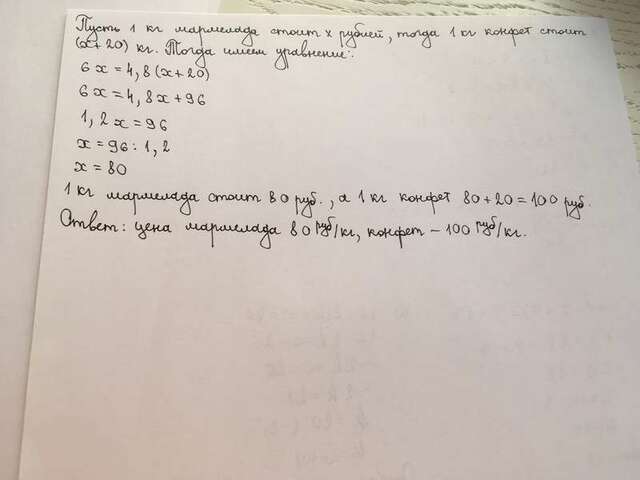 Пусть 1 кг мармелада стоит x рублей, тогда 1 кг конфет стоит
(x+20) кг. Тогда имеем уравнение:
6x = 4,8(x+20)
6x = 4,8x+96
1,2x = 96
x = 96:1,2
x = 80
1 кг мармелада стоит 80 руб., а 1 кг конфет 80+20=100 руб.
Ответ: цена мармелада 80 руб/кг, конфет - 100 руб/кг.